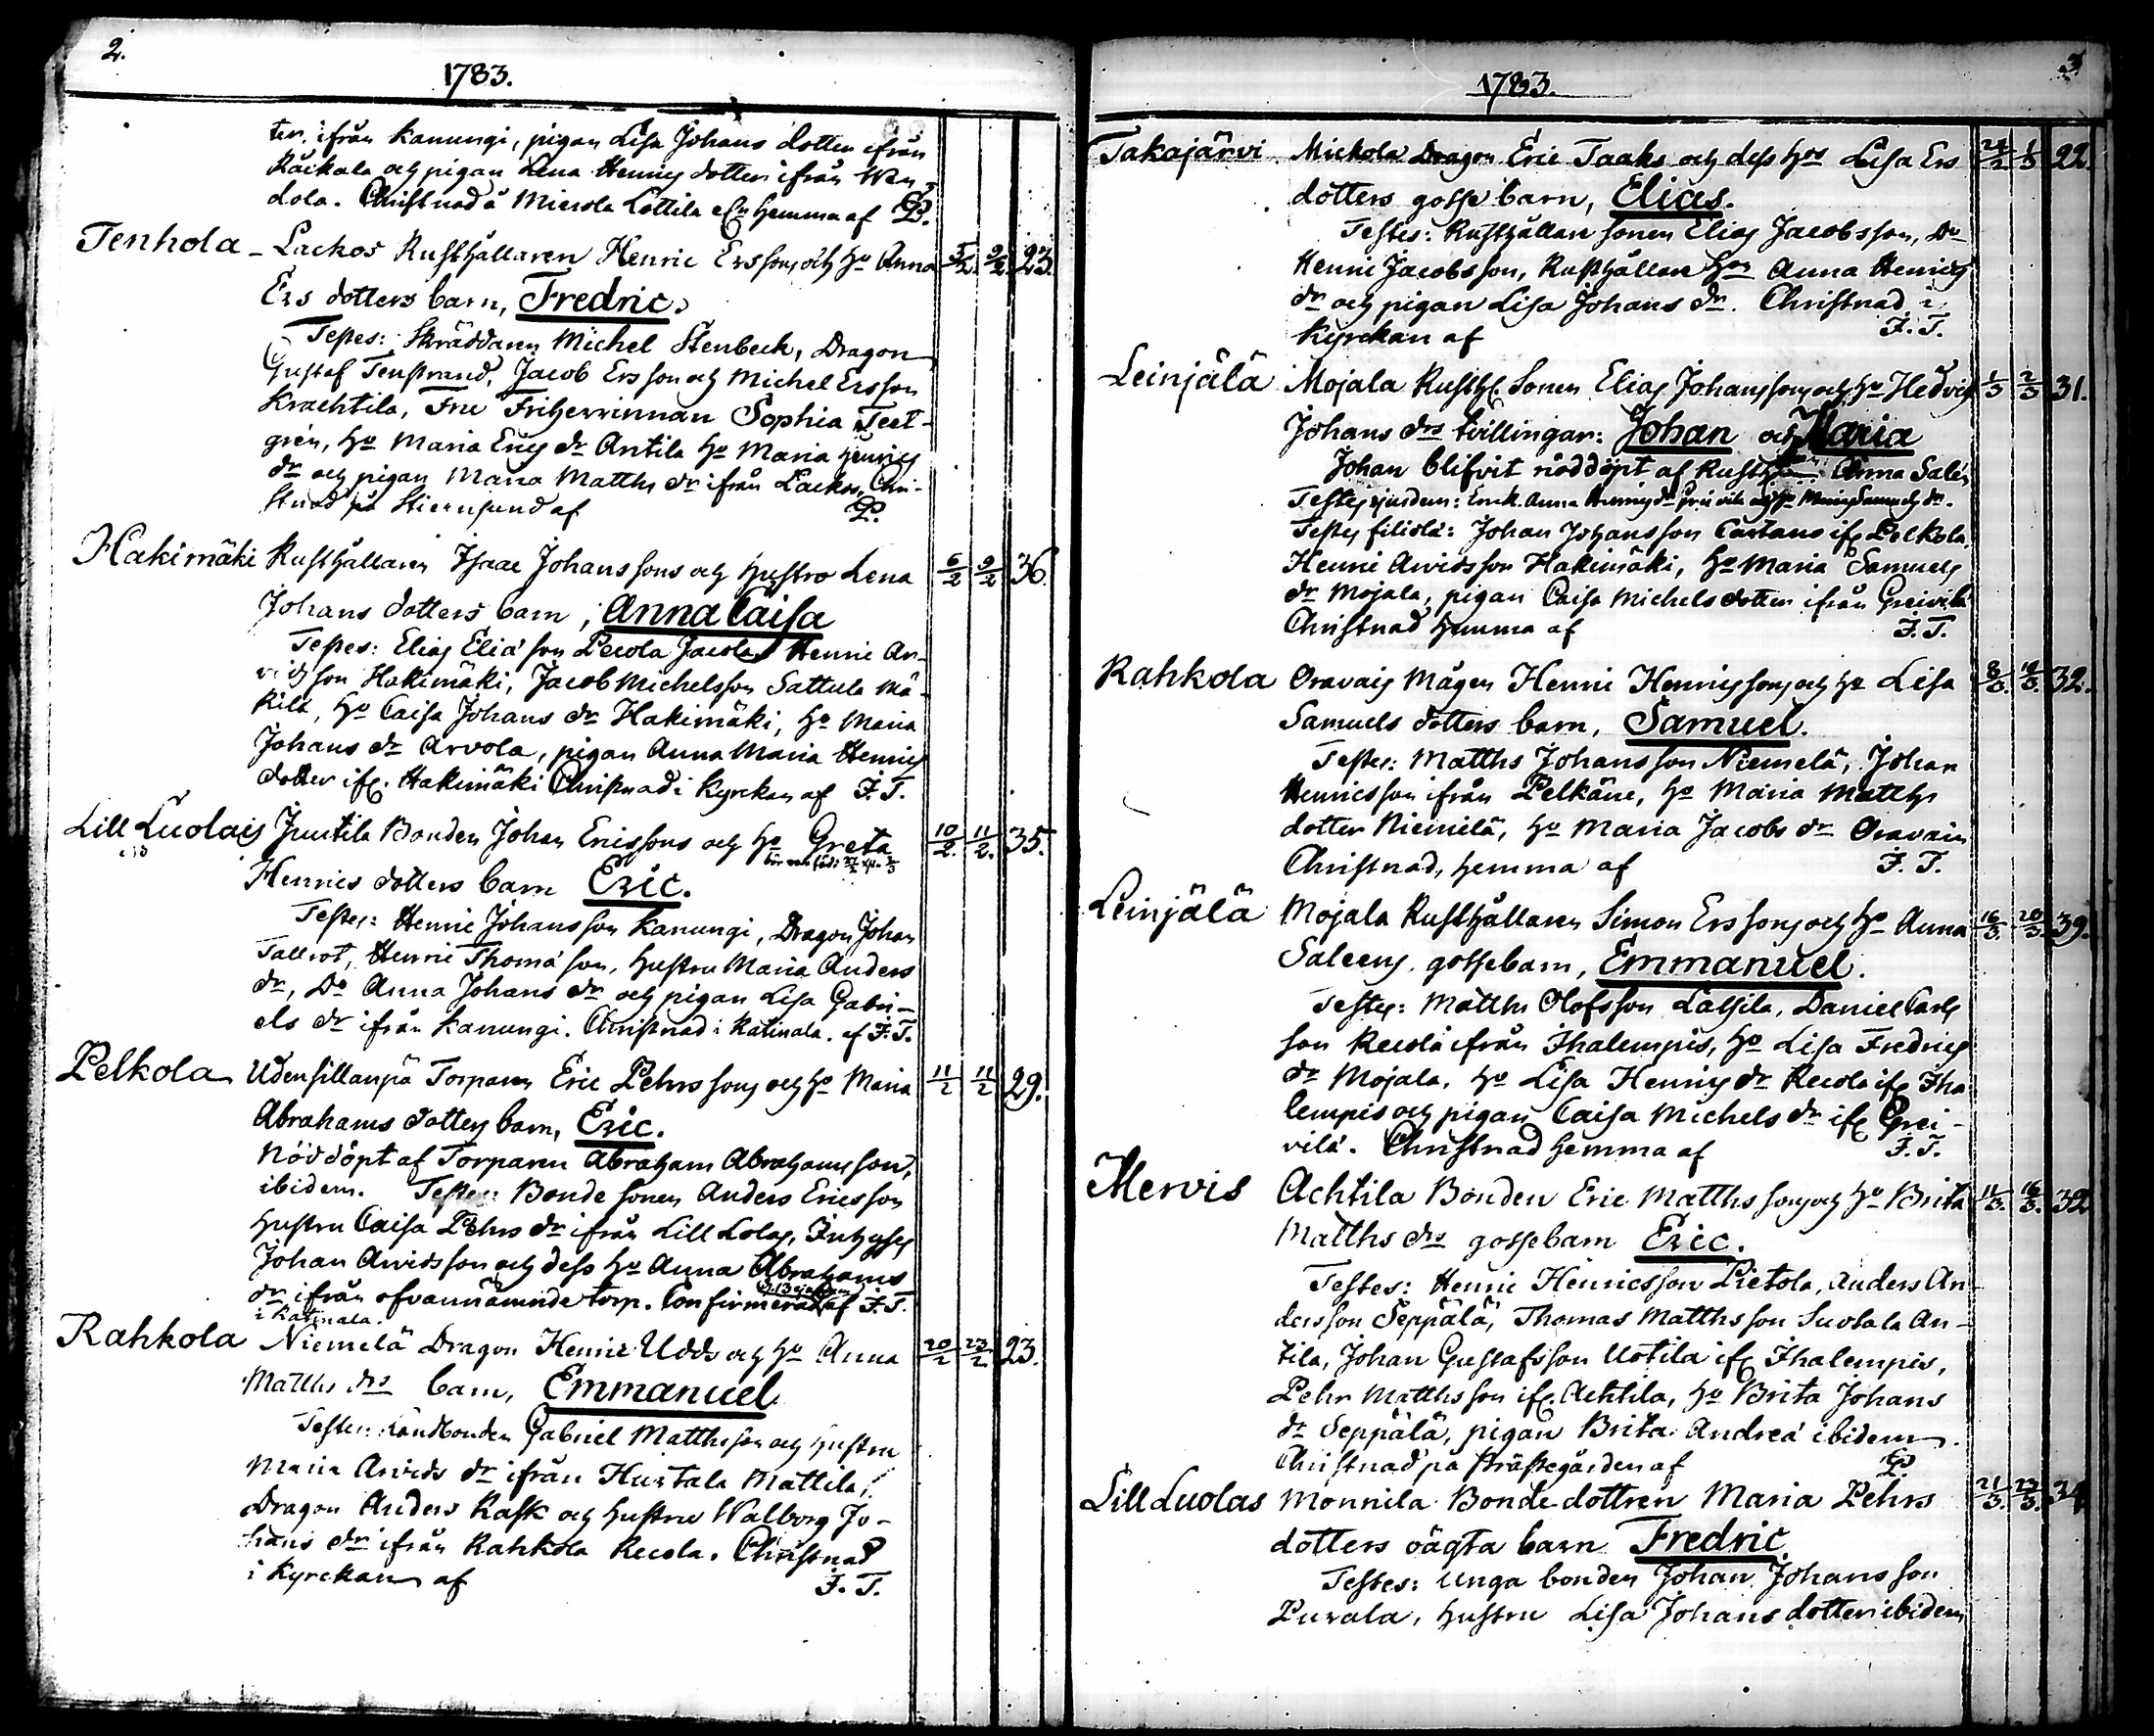 2.
1783.
ten ifrån Kanungi, pigan Lisa Johans dotter ifrån
Räikala och pigan Lena Henrics dotter ifrån Wen
dola. Christnad å Miemola Lottila hemma af P.
Tenhola - Lackos Rusthållaren Henric Erssons och ho Anna 5/2. 9/2. 23.
Ers dotters barn, Fredric.
Testes: Skräddaren Michel Stenbeck, Dragon
Gustaf Tenstrand, Jacob Ersson och Michel Ersson
Krachtila, Fru Friherrinnan Sophia Teet-
grén, ho Maria Erics dr Antila ho Maria Henrics
dr och pigan Maria Matths dr ifrån Lackos, Chri-
stnad på Stiernsund af P.
Hakimäki Rusthållaren Isaac Johanssons och hustro Lena 6/2 9/2 36.
Johans dotters barn, Anna Caisa
Testes: Elias Elia son Pecola Jacola Henric Ar-
vidsson Hakimäki, Jacob Michelsson Sattula Mä-
kilä, ho Caisa Johans dr Hakimäki, ho Maria
Johans dr Arvola, pigan Anna Maria Henrics
dotter ifr. Hakimäki Christnad i Kyrckan af F. T.
Lill Luolais Juutila Bonden Johan Ericssons och ho Greta 10/2. 11/2. 35.
Henrics dotters barn Eric.
Testes: Henric Johansson Kanungi, Dragon Johan
Tallrot, Henric Thomæ son, hustru Maria Anders
dr, Do Anna Johans dr och pigan Lisa Gabri-
els dr ifrån Kanungi. Christnad i Katinala. af F. T.
Pelkola Udensillanpä Torparen Eric Pehrssons och ho Maria 11/2 11/2 29.
Abrahams dotters barn, Eric.
Nöddöpt af Torparen Abraham Abrahamsson,
ibidem. Testes: Bonde sonen Anders Ericsson
hustru Caisa Pehrs dr ifrån Lill Lolas, Inhyses
Johan Arvidsson och dess ho Anna Abrahams
dr ifrån ofvannämnde torp. Confirmerad af F. T.
i Katinala.
Rahkola Niemelä Dragon Henric Udds och ho Anna 20/2 22/2 23.
Matths drs barn, Emmanuel
Testes: Landbonden Gabriel Matthsson och hustru
Maria Arvids dr ifrån Hurtala Mattila,
Dragon Anders Rask och hustru Walborg Jo-
hans dr ifrån Rahkola Recola. Christnad
i Kyrckan af F. T.
3.
1783.
Takajärvi Mickola Dragon Eric Taaks och dess hos Lisa Ers 24/2 1/3 22.
dotters gosse barn, Elias.
Testes: Rusthållare sonen Elias Jacobsson, Do
Henric Jacobsson, Rusthållare hon Anna Henrics
dr och pigan Lisa Johans dr. Christnad i
Kyrckan af F. T.
Leinjälä Mojala Rusth. Sonen Elias Johanssons och ho Hedvig 1/3 2/3 31.
Johans drs tvillingar: Johan och Maria
Johan blifvit nöddöpt af Rusth. Anna Salén
Testes ejusdem: Anna Henrics dr och ho Maria Samuels dr.
Testes filiolæ: Johan Johansson Cartano ifr Pelkola,
Henric Arvidsson Hakimäki, ho Maria Samuels
dr Mojala, pigan Caisa Michels dotter ifrån Greivilä
Christnad hemma af F. T.
Rahkola Oravais Mågen Henric Henricssons och ho Lisa 8/3. 10/3. 32.
Samuels dotters barn, Samuel.
Testes: Matths Johansson Niemelä, Johan
Henricsson ifrån Pelkäne, ho Maria Matths
dotter Niemelä, ho Maria Jacobs dr Oravain
Christnad, hemma af F. T.
Leinjälä Mojala Rusthållaren Simon Erssons och ho Anna 16/3. 20/3. 39.
Saleens gossebarn, Emmanuel.
Testes: Matths Olofsson Lassila, Daniel Carls
son Recola ifrån Ihalempis, ho Lisa Fredrics
dr Mojala, ho Lisa Henrics dr Recola ifr Iha
lempis och pigan Caisa Michels dr ifr Grei-
vilä. Christnad hemma af F. T.
Mervis Achtila Bonden Eric Matthssons och ho Brita 11/3. 16/3. 32
Matths drs gossebarn Eric.
Testes: Henric Henricsson Pietola, Anders An
dersson Seppälä, Thomas Matthsson Suotala An-
tila, Johan Gustafsson Uotila ifr Ihalempis,
Pehr Matthsson ifr. Achtila, ho Brita Johans
dr Seppälä, pigan Brita Andreæ ibidem.
Christnad på Prästegården af P.
Lill Luolas Monnila Bonde dottren Maria Pehrs 21/3. 23/3. 24
dotters oägta barn Fredric
Testes: unga bonden Johan Johansson
Purala, hustru Lisa Johans dotter ibidem